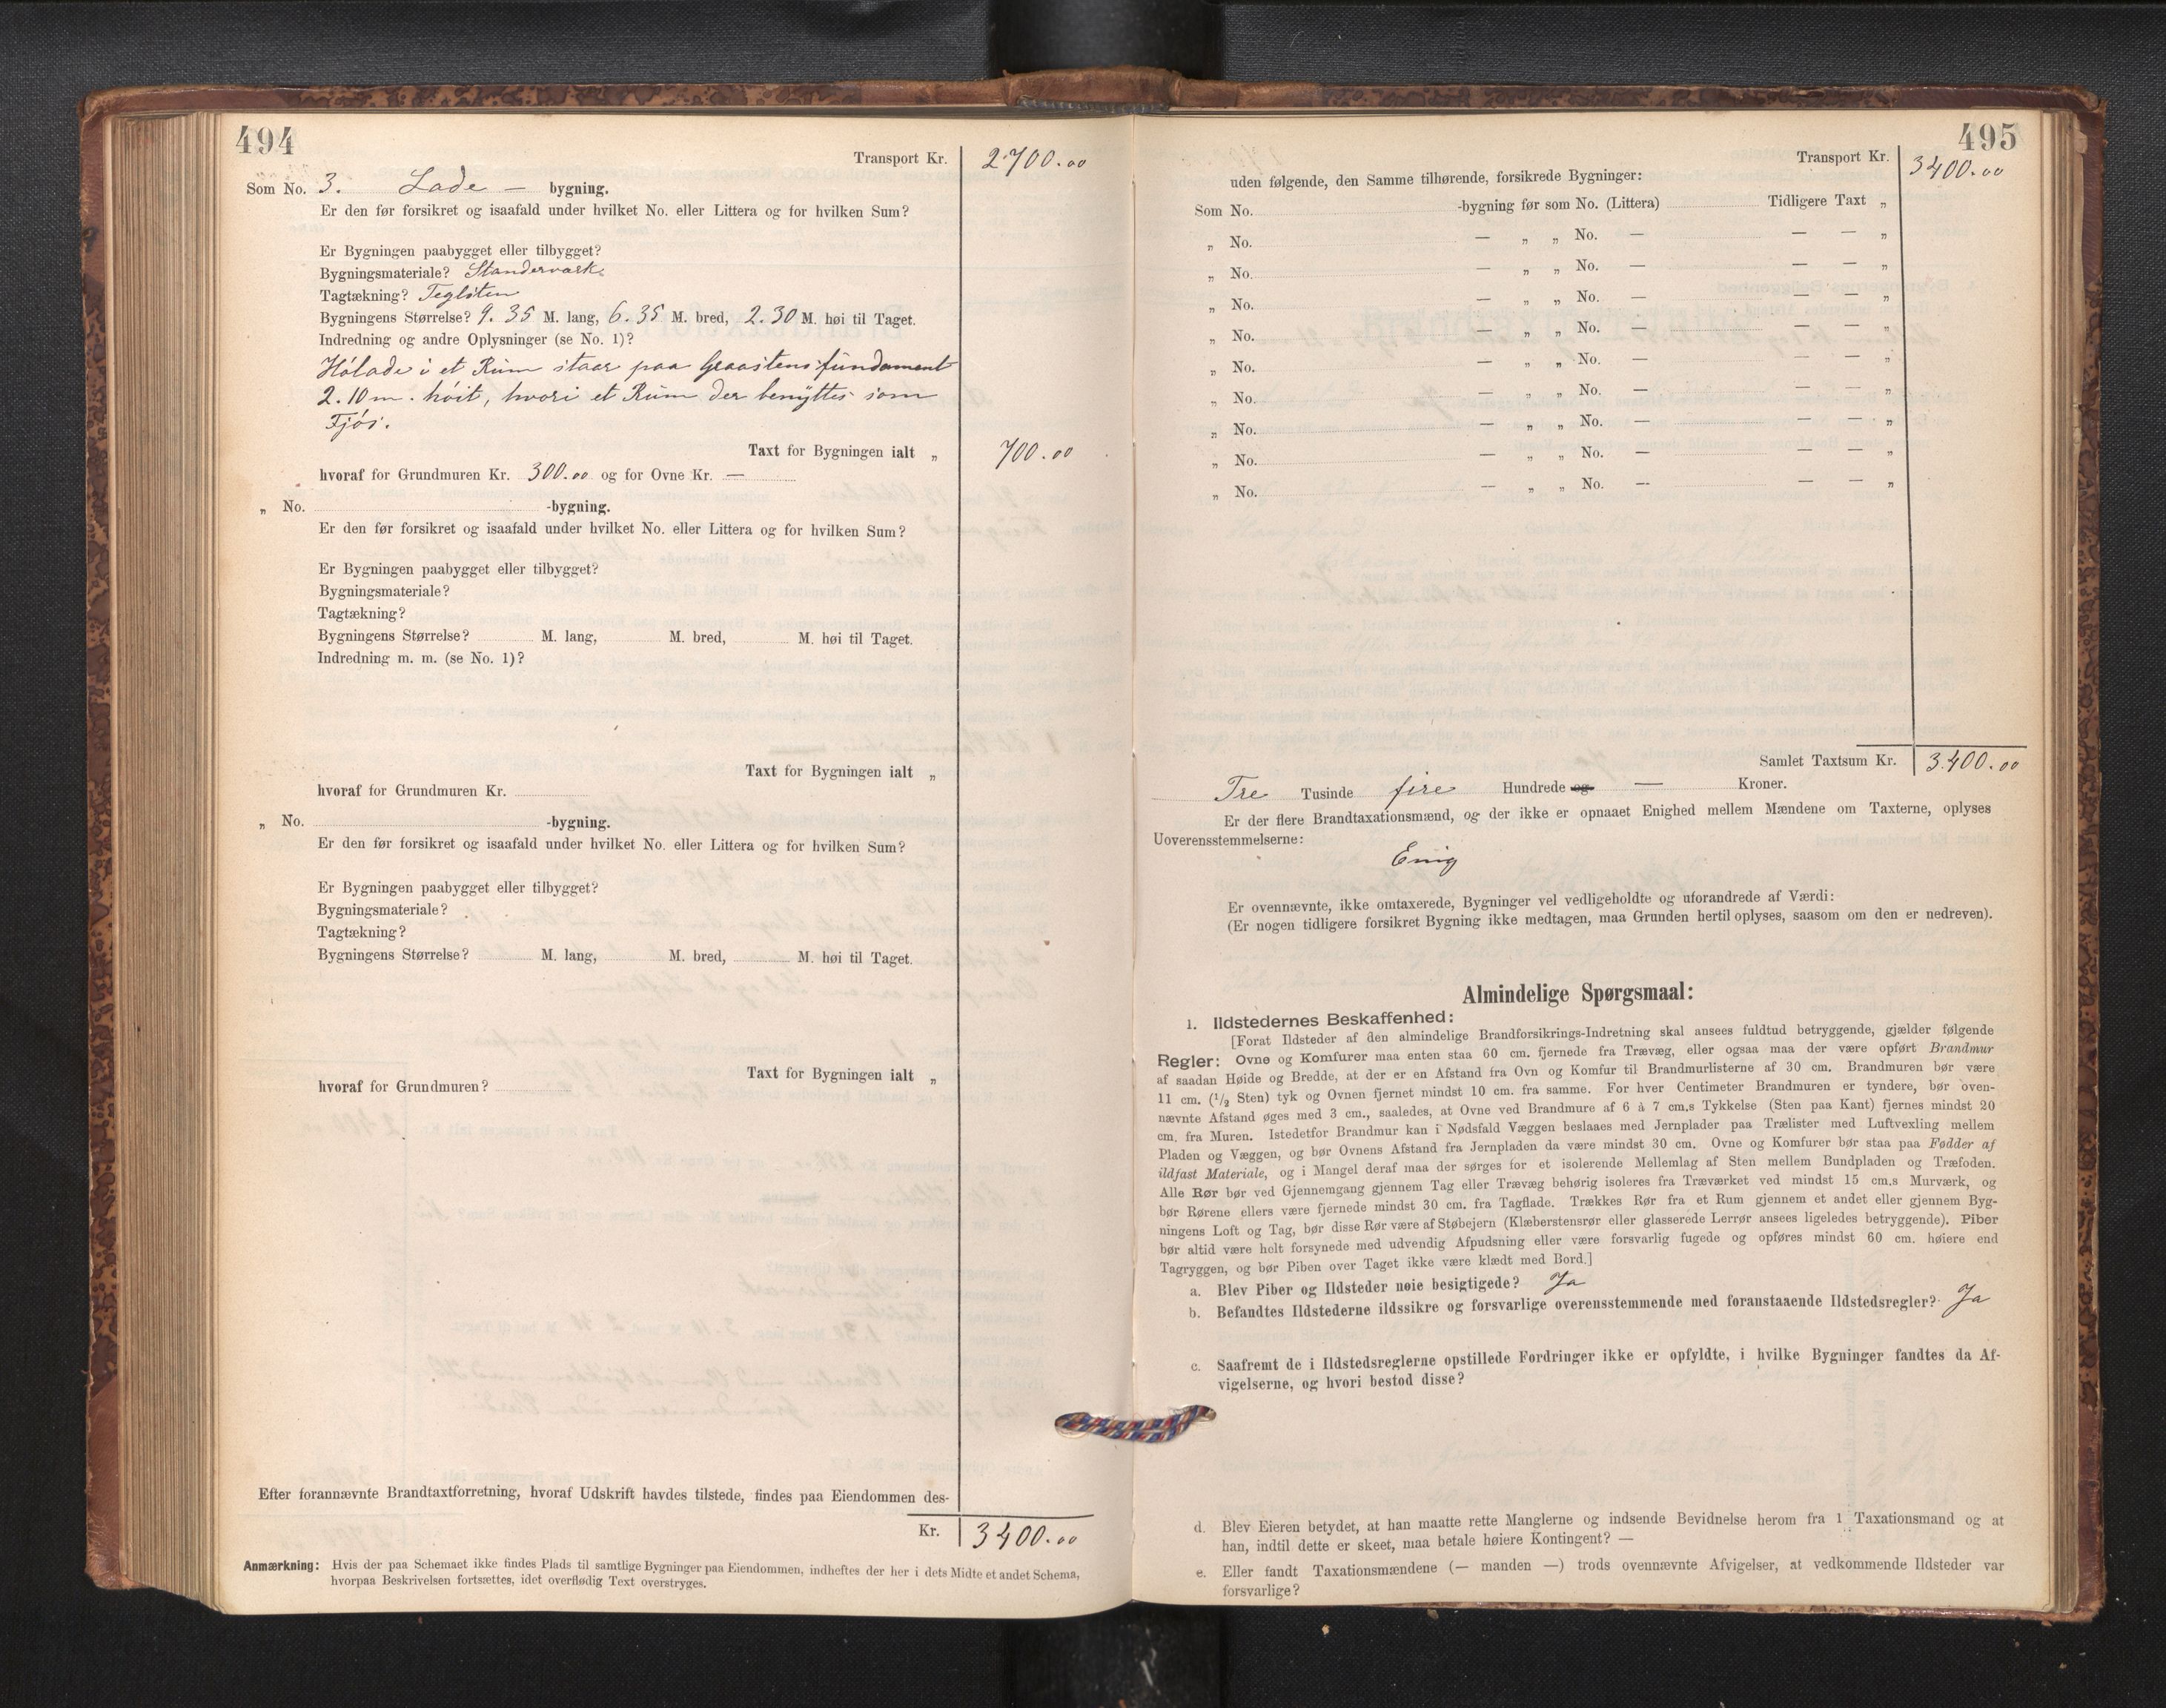 494
Transport Kr. 2700.00
Som No. 3. Lade — bygning.
Er den før forsikret og isaafald under hvilket No. eller Littera og for hvilken Sum?
Er Bygningen paabygget eller tilbygget?
Bygningsmateriale? Standerværk.
Tagtækning? Teglsten
Bygningens Størrelse? 9.35 M. lang, 6.35 M. bred, 2.30 M. høi til Taget.
Indredning og andre Oplysninger (se No. 1)?
Hölade i et Rum staar paa Graastens fundament
2.10 m. höit, hvori et Rum der benyttes som
Fjös.
Taxt for Bygningen ialt „ 700.00
hvoraf for Grundmuren Kr. 300.00 og for Ovne Kr. —
„ No. -bygning.
Er den før forsikret og isaafald under hvilket No. eller Littera og for hvilken Sum?
Er Bygningen paabygget eller tilbygget?
Bygningsmateriale?
Tagtækning?
Bygningens Størrelse? M. lang, M. bred, M. høi til Taget.
Indredning m. m. (se No. 1)?
Taxt for Bygningen ialt „
hvoraf for Grundmuren Kr.
„ No. -bygning.
Er den før forsikret og isaafald under hvilket No. eller Littera og for hvilken Sum?
Er Bygningen paabygget eller tilbygget?
Bygningsmateriale?
Tagtækning?
Bygningens Størrelse? M. lang, M. bred, M. høi til Taget.
Taxt for Bygningen ialt „
hvoraf for Grundmuren?
Efter forannævnte Brandtaxtforretning, hvoraf Udskrift havdes tilstede, findes paa Eiendommen des-
Kr. 3400.00
Anmærkning: Hvis der paa Schemaet ikke findes Plads til samtlige Bygninger paa Eiendommen, indheftes der her i dets Midte et andet Schema,
hvorpaa Beskrivelsen fortsættes, idet overflødig Text overstryges.
495
Transport Kr. 3400.00
uden følgende, den Samme tilhørende, forsikrede Bygninger:
Som No. -bygning før som No. (Littera) Tidligere Taxt „
„ No. — „ „ No. — — — „
„ No. — „ „ No. — — — „
„ No. — „ „ No. — — — „
„ No. — „ „ No. — — — „
„ No. — „ „ No. — — — „
„ No. — „ „ No. — — — „
„ No. — „ „ No. — — — „
„ No. — „ „ No. — — — „
„ No. — „ „ No. — — — „
Samlet Taxtsum Kr. 3.400.00
Tre Tusinde fire Hundrede og — Kroner.
Er der flere Brandtaxationsmænd, og der ikke er opnaaet Enighed mellem Mændene om Taxterne, oplyses
Uoverensstemmelserne:
Enig
Er ovennævnte, ikke omtaxerede, Bygninger vel vedligeholdte og uforandrede af Værdi:
(Er nogen tidligere forsikret Bygning ikke medtagen, maa Grunden hertil oplyses, saasom om den er nedreven).
Almindelige Spørgsmaal:
1. Ildstedernes Beskaffenhed:
[Forat Ildsteder af den almindelige Brandforsikrings-Indretning skal ansees fuldtud betryggende, gjælder følgende
Regler: Ovne og Komfurer maa enten staa 60 cm. fjernede fra Trævæg, eller ogsaa maa der være opført Brandmur
af saadan Høide og Bredde, at der er en Afstand fra Ovn og Komfur til Brandmurlisterne af 30 cm. Brandmuren bør være
11 cm. (1/2 Sten) tyk og Ovnen fjernet mindst 10 cm. fra samme. For hver Centimeter Brandmuren er tyndere, bør oven-
nævnte Afstand øges med 3 cm., saaledes, at Ovne ved Brandmure af 6 à 7 cm.s Tykkelse (Sten paa Kant) fjernes mindst 20
cm. fra Muren. Istedetfor Brandmur kan i Nødsfald Væggen beslaaes med Jernplader paa Trælister med Luftvexling mellem
Pladen og Væggen, og bør Ovnens Afstand fra Jernpladen da være mindst 30 cm. Ovne og Komfurer bør staa paa Fødder af
ildfast Materiale, og i Mangel deraf maa der sørges for et isolerende Mellemlag af Sten mellem Bundpladen og Træfoden.
Alle Rør bør ved Gjennemgang gjennem Tag eller Trævæg behørig isoleres fra Træværket ved mindst 15 cm.s Murværk, og
bør Rørene ellers være fjernede mindst 30 cm. fra Tagflade. Trækkes Rør fra et Rum gjennem et andet eller gjennem Byg-
ningens Loft og Tag, bør disse Rør være af Støbejern (Klæberstensrør eller glasserede Lerrør ansees ligeledes betryggende). Piber
bør altid være helt forsynede med udvendig Afpudsning eller være forsvarlig fugede og opføres mindst 60 cm. høiere end
Tagryggen, og bør Piben over Taget ikke være klædt med Bord.]
a. Blev Piber og Ildsteder nøie besigtigede? Ja
b. Befandtes Ildstederne ildssikre og forsvarlige overensstemmende med foranstaaende Ildstedsregler? Ja
c. Saafremt de i Ildstedsreglerne opstillede Fordringer ikke er opfyldte, i hvilke Bygninger fandtes da Af-
vigelserne, og hvori bestod disse?
d. Blev Eieren betydet, at han maatte rette Manglerne og indsende Bevidnelse herom fra 1 Taxationsmand og at
han, indtil dette er skeet, maa betale høiere Kontingent? —
e. Eller fandt Taxationsmændene (— manden —) trods ovennævnte Afvigelser, at vedkommende Ildsteder var
forsvarlige?